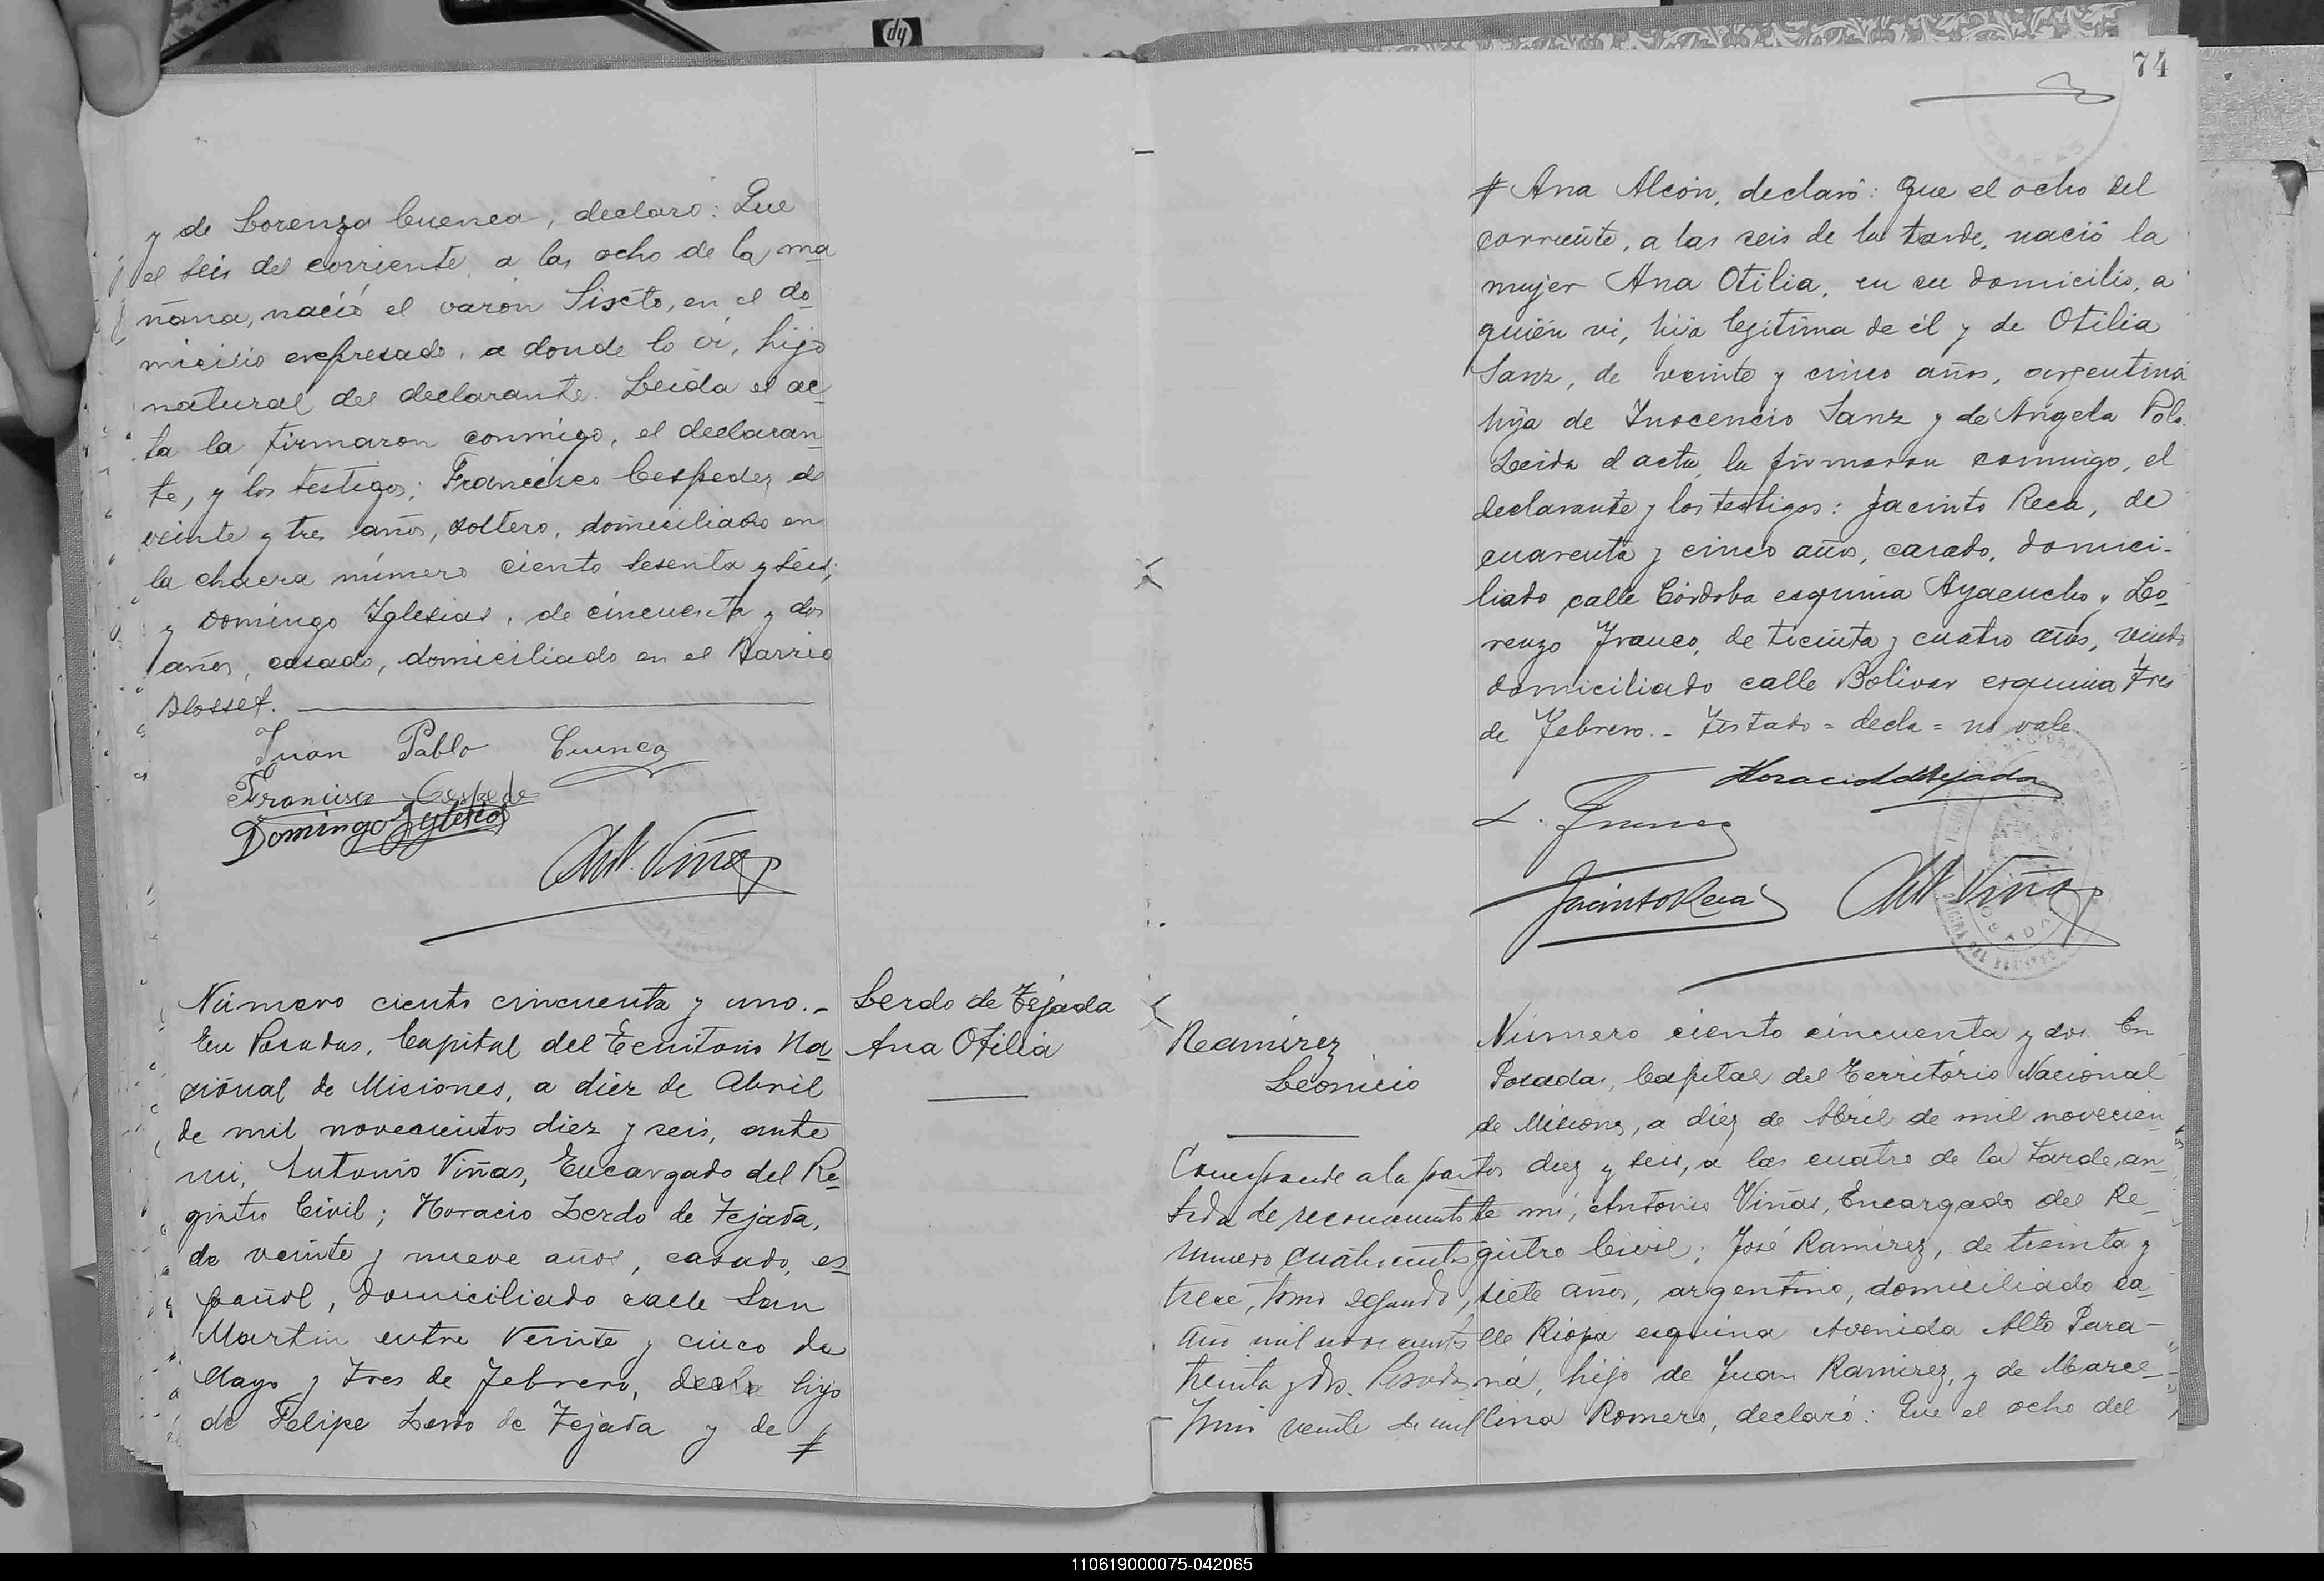 y de Lorenza Cuenca, declaró: Que
el seis del corriente, a las ocho de la ma
ñana, nació el varón Sixto, en el do
micilio expresado, a donde lo vi, hijo
natural del declarante. Leida el ac
ta la firmaron conmigo, el declaran
te, y los testigos: Francisco Cespedes, de
veinte y tres años, soltero, domiciliado en
la chacra número ciento sesenta y seis;
y Domingo Iglesias, de cincuenta y dos
años, casado, domiciliado en el Barrio
Blosset.
Juan Pablo Cuenca
Francisco Cespede
Domingo Iglesias
Ant. Viñas
Número ciento cincuenta y uno.-
En Posadas, Capital del Territorio Na
cional de Misiones, a diez de Abril
de mil novecientos diez y seis, ante
mi, Antonio Viñas, Encargado del Re
gistro Civil; Horacio Lerdo de Tejada,
de veinte y nueve años, casado, es
pañol, domiciliado calle San
Martin entre Veinte y cinco de
Mayo y Tres de Febrero, decla hijo
de Felipe Lerdo de Tejada y de #
Lerdo de Tejada
Ana Otilia
74
# Ana Alcón, declaró: Que el ocho del
corriente, a las seis de la tarde, nació la
mujer Ana Otilia, en su domicilio, a
quién vi, hija legitima de él y de Otilia
Sanz, de veinte y cinco años, argentina
hija de Inocencio Sanz y de Angela Polo.
Leida el acta, la firmaron conmigo, el
declarante y los testigos: Jacinto Reca, de
cuarenta y cinco años, casado, domici-
liado calle Córdoba esquina Ayacucho y Lo
renzo Franco, de treinta y cuatro años, viudo
domiciliado calle Bolivar esquina Tres
de Febrero.- Testado = decla = no vale
Horacio L de Tejada
L. Franco
Jacinto Reca
Ant. Viñas
Ramirez
Leonicio
Corresponde a la par
tida de reconocimiento
número cuatrocientos
trece, tomo segundo,
año mil novecientos
treinta y dos. Posadas
Junio veinte de mil
Número ciento cincuenta y dos. En
Posadas, Capital del Território Nacional
de Misiones, a diez de Abril de mil novecien
tos diez y seis, a las cuatro de la tarde, an
te mi, Antonio Viñas, Encargado del Re
gistro Civil; José Ramirez, de treinta y
siete años, argentino, domiciliado ca
lle Rioja esquina Avenida Alto Para-
ná, hijo de Juan Ramirez, y de Marce
lina Romero, declaró: Que el ocho del
110619000075-042065